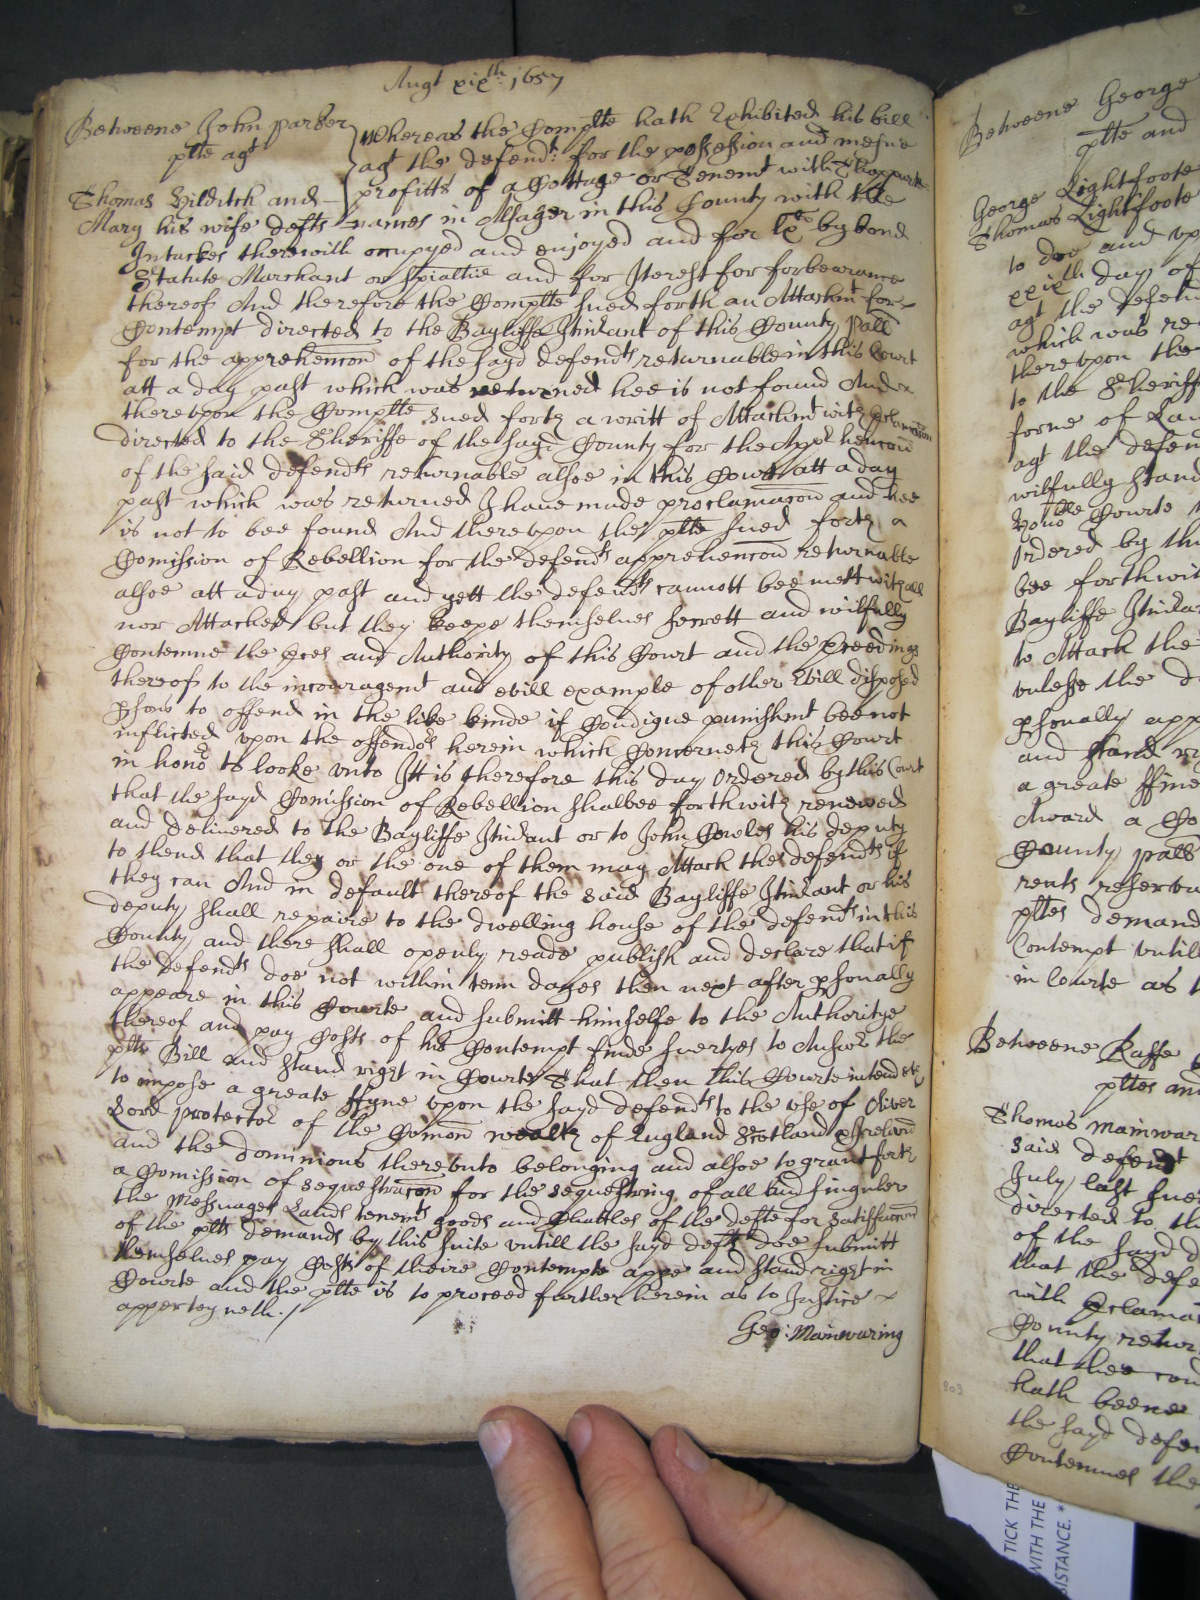 Augt xixth: 1657
Betweene John Parker
plte agt
Thomas Hilditch and
Mary his wife defts
Whereas the Complte hath Exhibited his bill
agt the defendt: for the possession and mesne
profitts of a Cottage or Tenemt with Thappurte
=nances in Alsager in this County with the
Intackes therewith occupyed and enjoyed and for lxli by bond
Statute Marchant or Spialtie and for Iterest for forbearance
thereof And therefore the Complte sued forth an Attachmt for
Contempt directed to the Bayliffe Itinerant of this County Pall
for the apprehencon of the sayd defendts returnable in this Court
att a day past which was returned hee is not found And
therevpon the Complte sued forth a writt of Attachmt with
directed to the Sheriffe of the sayd County for the App'hencon
of the said defendts returnable alsoe in this Court att a day
past which was returned I have made proclamacon and hee
is not to bee found And therevpon the plte sued forth a
Comission of Rebellion for the defendts apprehencon returnable
alsoe att a day past and yett the defendts cannott bee mett withall
nor Attached but they keepe themselves secrett and wilfully
Contemne the pces and Authority of this Court and the pceedings
thereof to the incouragemt and evill example of other Evill disposed
psons to offend in the like kinde if Condigne punishmt bee not
inflicted vpon the offendors herein which Concerneth this Court
in honor to looke vnto Itt is therefore this day Ordered by this Court
that the sayd Comission of Rebellion shalbee forthwith renewed
and delivered to the Bayliffe Itinerant or to John Cowles his deputy
to thend that they or the one of them may Attach the defendts if
they can And in default thereof the said Bayliffe Itinerant or his
deputy shall repaire to the dwelling house of the defendts in this
County and there shall openly reade publish and declare that if
the defendts doe not within tenn dayes then next after psonally
appeare in this Courte and submitt himselfe to the Authoritye
thereof and pay Costs of his Contempt finde suertyes to Answer the
plts Bill and stand right in Courte That then this Courte intendeth
to impose a greate ffyne vpon the sayd defendts to the vse of Oliver
Lord protector of the Comon wealth of England Scotland & Ireland
and the dominions therevnto belonging and alsoe to grant forth
a Comission of Sequestracon for the sequestring of all and singuler
the Messuages Lands tenemts goods and Chattles of the defts for Satisfaccon
of the plts demands by this suite vntill the sayd defts doe submitt
themselves pay Costs of theire Contempte appe and stand right in
Courte and the plte is to proceed further herein as to Justice
apperteyneth./
Geo: Mainwaring
Betweene George
plte and
George Lightfoote
Thomas Lightfoote
to doe and vp
xxixth day of
agt the defend
which was re
therevpon the
to the Sheriffe
forne of
agt the defen
wilfully stand
Courte
Ordered by th
bee forthwit
Bayliffe Itinera
to Attach the
vnlesse the d
psonally app
and stand ri
a greate ffine
Award a Co
County pall
rents reserva
pltes demand
Contempt vntill
in Courte as t
Betweene Raffe
pltes and
Thomas Mainwar
said defendt
July last sued
directed to th
of the sayd d
that the defe
with pclama
County retur
that thee cou
hath beene
the sayd defen
Contemnes the
203
TICK THE
WITH THE
ISTANCE. *